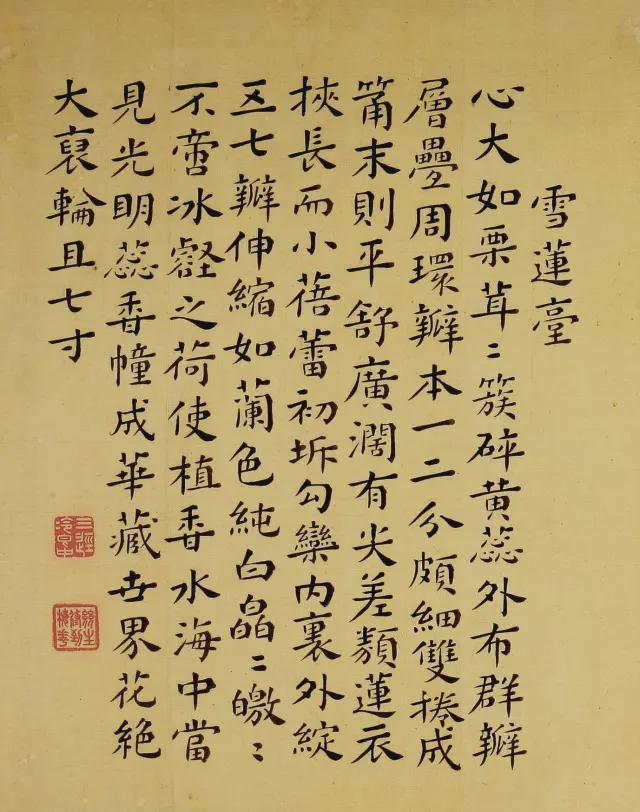 雪蓮臺
心大如栗茸〻簇碎黃蕊外布群瓣
層疊周環瓣本一二分頗細雙捲成
筩末則平舒廣濶有尖差類蓮衣
挾長而小蓓蕾初坼勾欒內裹外綻
五七瓣伸縮如蘭色純白皛〻皦〻
不啻冰壑之荷使植香水海中當
見光明蕊香幢成華藏世界花絕
大袤輪且七寸